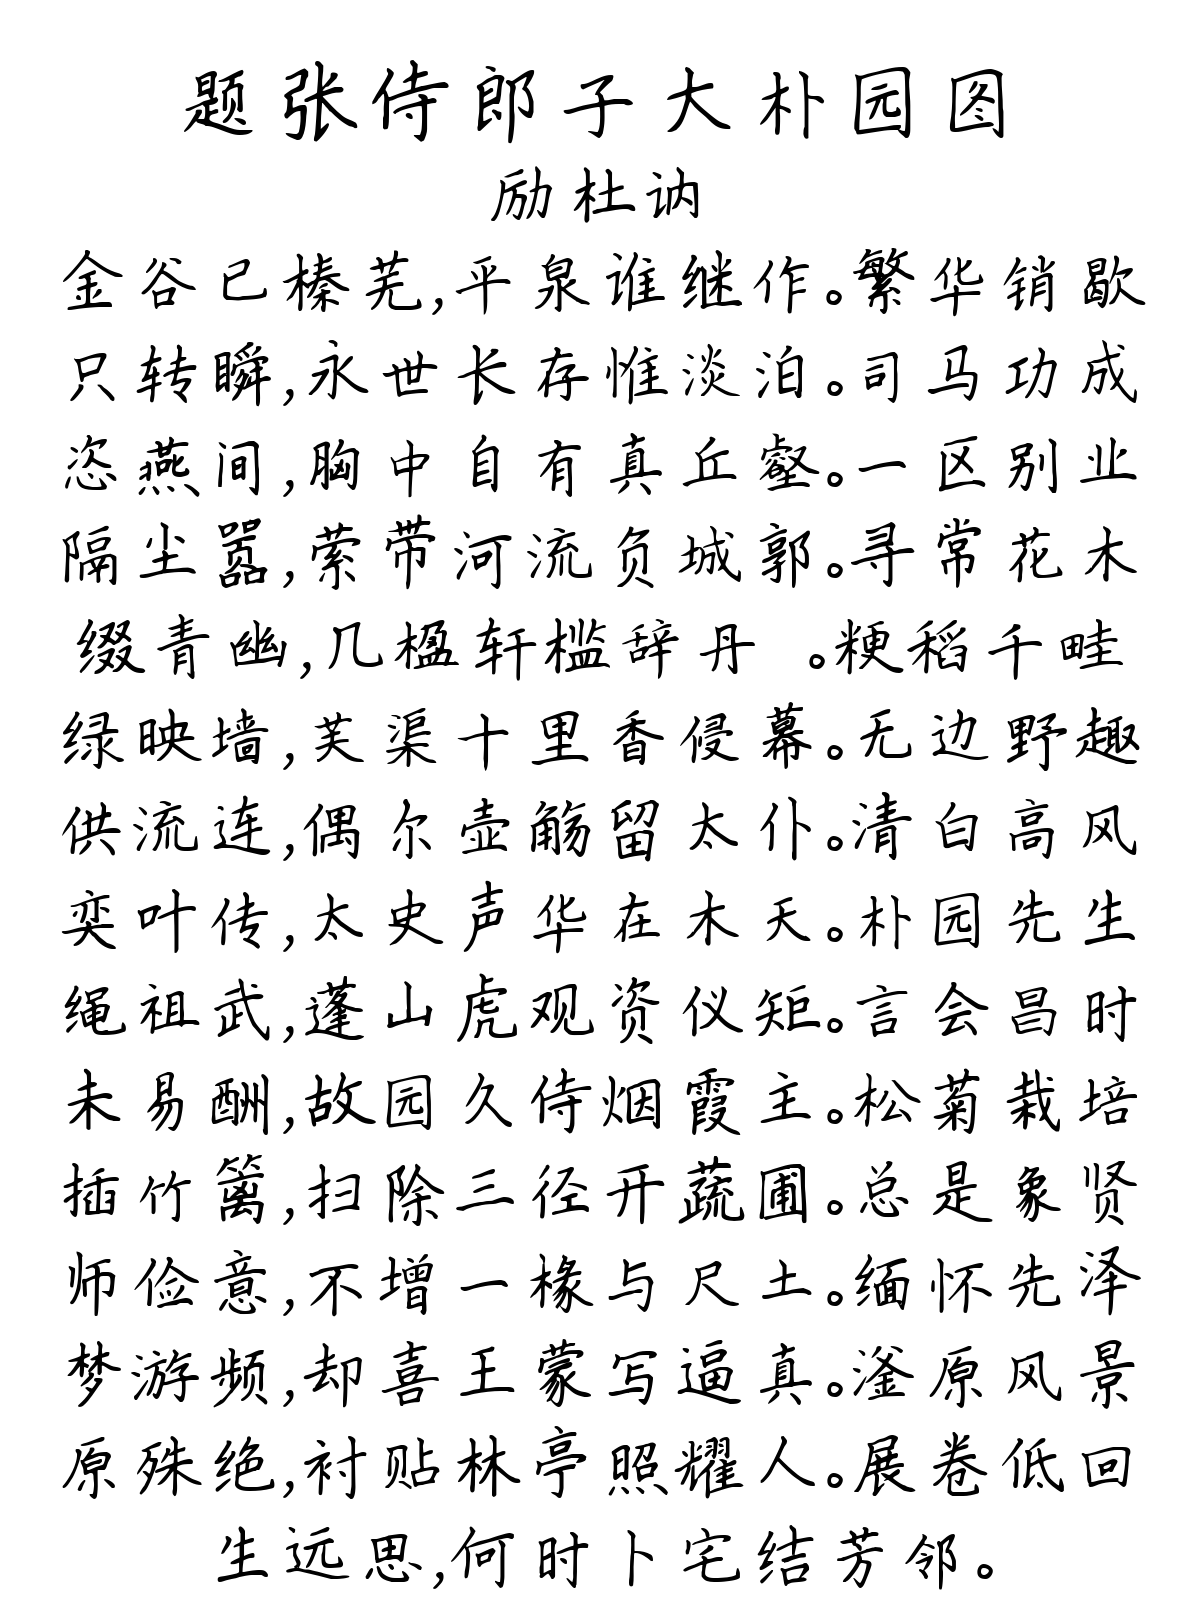 题张侍郎子大朴园图
励杜讷
金谷已榛芜,平泉谁继作。繁华销歇
只转瞬,永世长存惟淡泊。司马功成
恣燕间,胸中自有真丘壑。一区别业
隔尘嚣,萦带河流负城郭。寻常花木
缀青幽,几楹轩槛辞丹 。粳稻千畦
绿映墙,芙渠十里香侵幕。无边野趣
供流连,偶尔壶觞留太仆。清白高风
奕叶传,太史声华在木天。朴园先生
绳祖武,蓬山虎观资仪矩。言会昌时
未易酬,故园久侍烟霞主。松菊栽培
插竹篱,扫除三径开蔬圃。总是象贤
师俭意,不增一椽与尺土。缅怀先泽
梦游频,却喜王蒙写逼真。滏原风景
原殊绝,衬贴林亭照耀人。展卷低回
生远思,何时卜宅结芳邻。